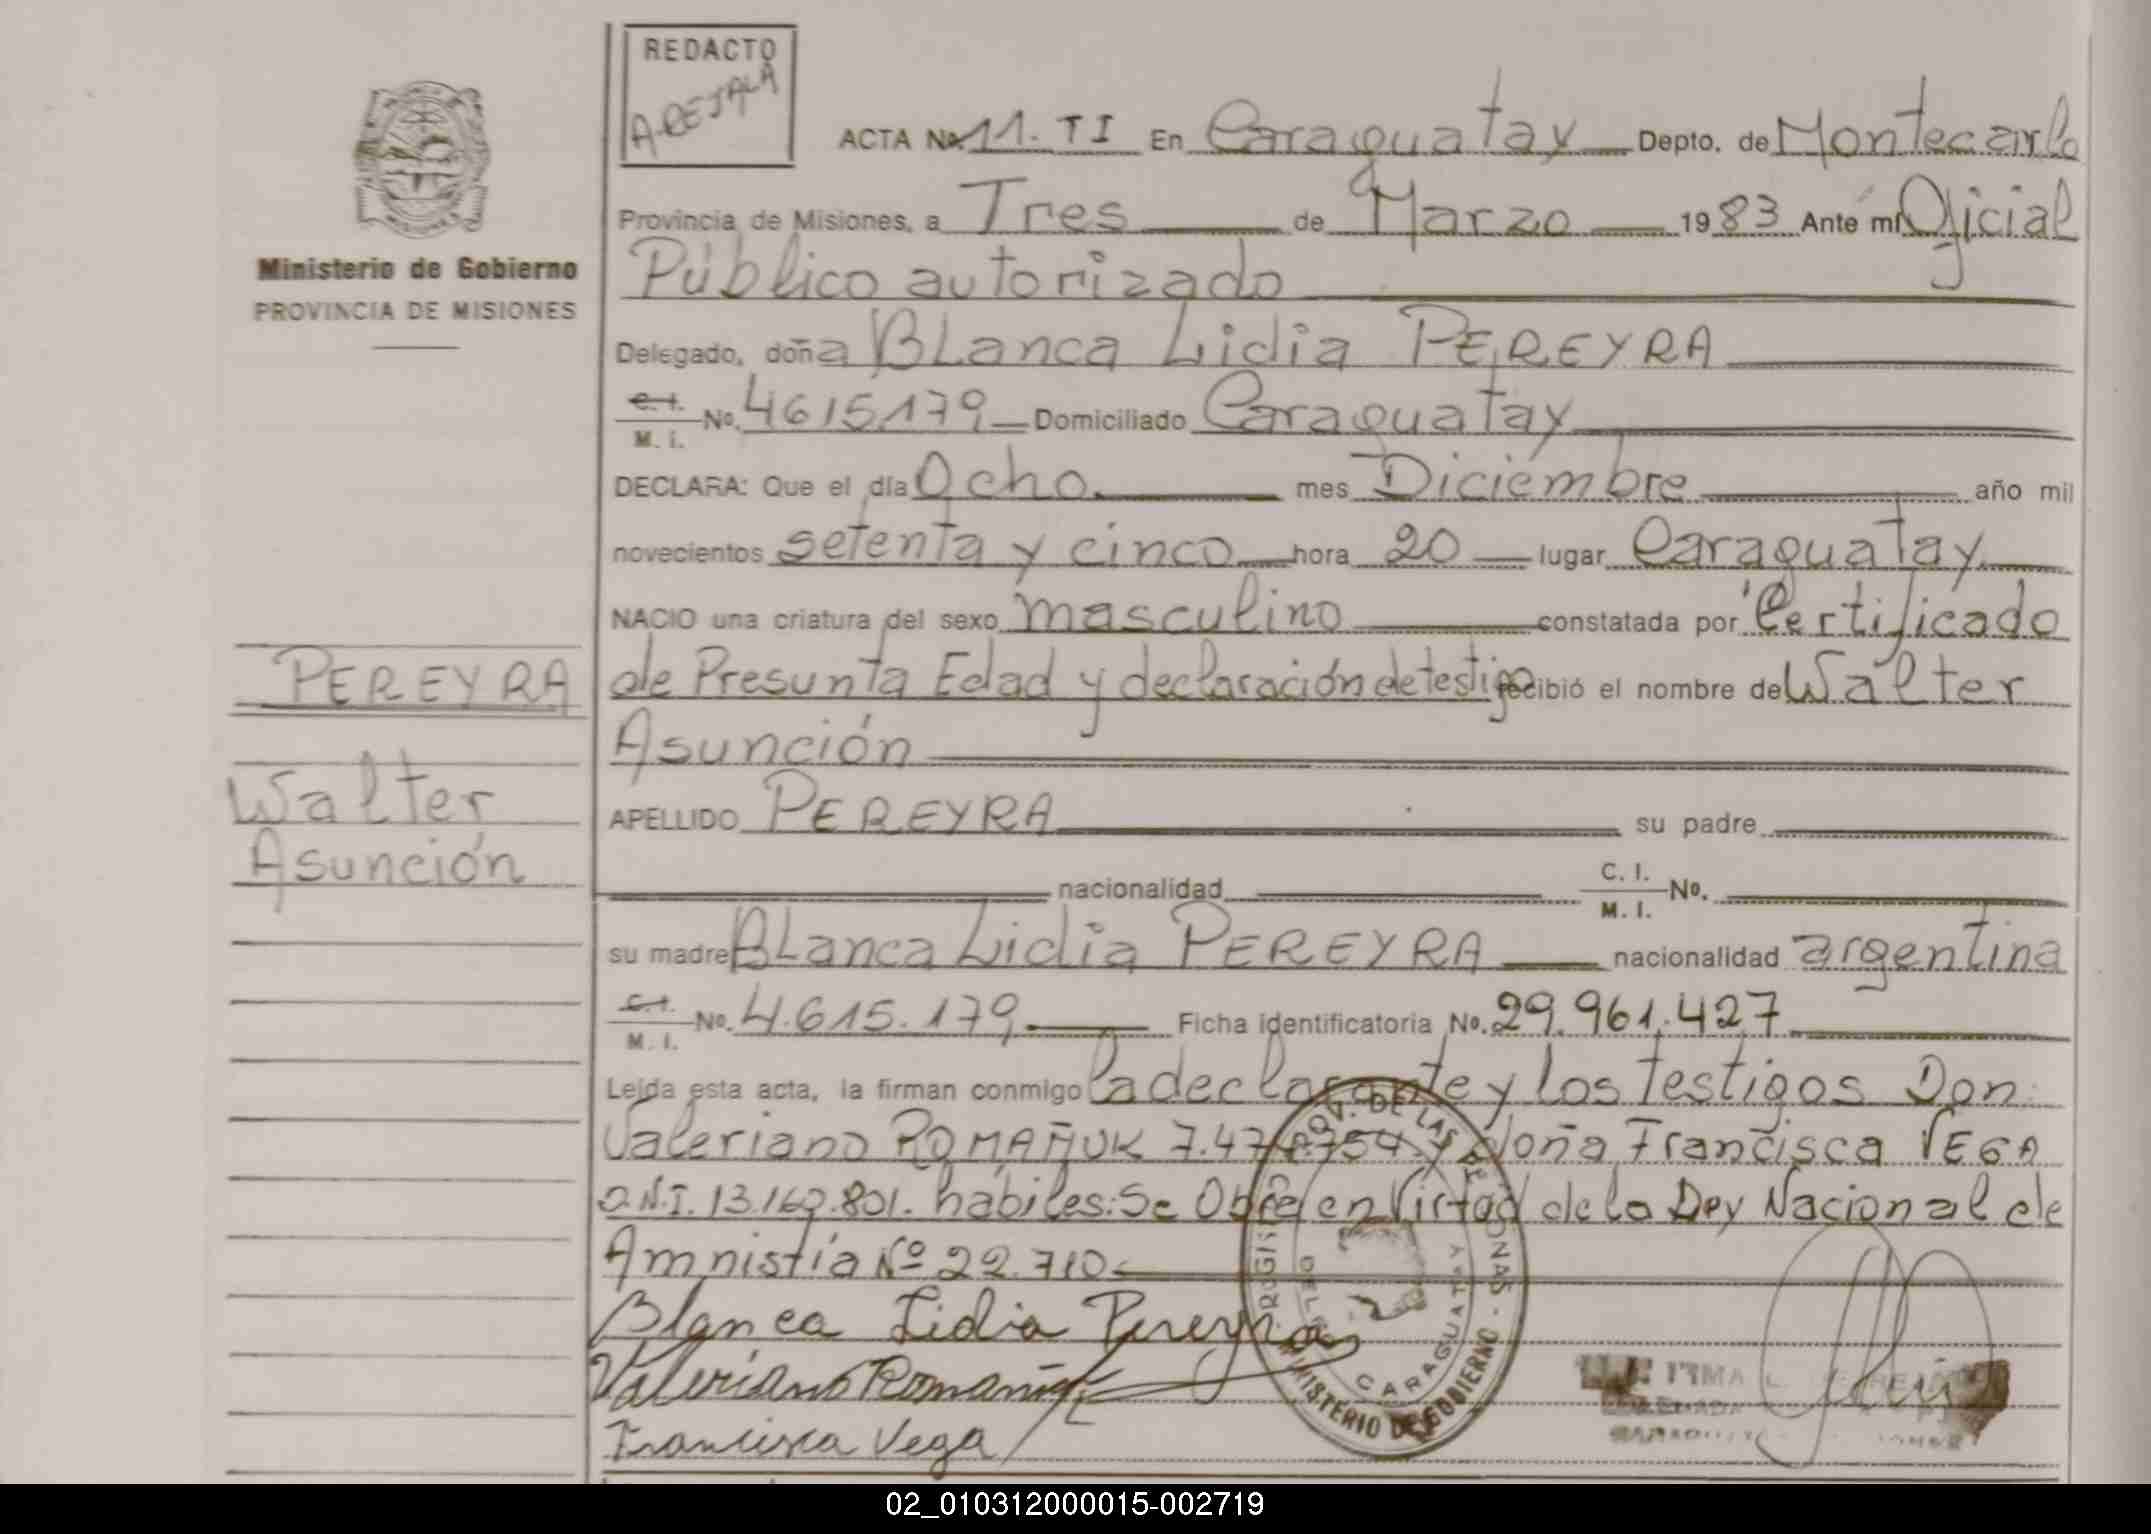 REDACTO
A. REJALA
ACTA No. 11. TI En Caraguatay Depto. de Montecarlo
Provincia de Misiones, a Tres de Marzo 1983 Ante mi Oficial
Público autorizado
Ministerio de Gobierno
PROVINCIA DE MISIONES
Delegado, doña Blanca Lidia PEREYRA
C. I. M. I. No. 4615.179 Domiciliado Caraguatay
DECLARA: Que el día Ocho mes Diciembre año mil
novecientos setenta y cinco hora 20 lugar Caraguatay
NACIO una criatura del sexo masculino constatada por Certificado
de Presunta Edad y declaración de testigo recibió el nombre de Walter
Asunción
PEREYRA
Walter
Asunción
APELLIDO PEREYRA su padre
nacionalidad C. I. M. I. No.
su madre Blanca Lidia PEREYRA nacionalidad argentina
C. I. M. I. No. 4.615.179 Ficha identificatoria No. 29.961.427
Leída esta acta, la firman conmigo la declarante y los testigos Don
Valeriano ROMAÑUK y doña Francisca VEGA
D.N.I. 13.162.801. hábiles: Se Obre en Virtud de la Ley Nacional de
Amnistía Nº 22.710
Blanca Lidia Pereyra
Valeriano Romañuk
Francisca Vega
PROV. DE LAS PERSONAS - MINISTERIO DE GOBIERNO
CARAGUATAY
02_010312000015-002719